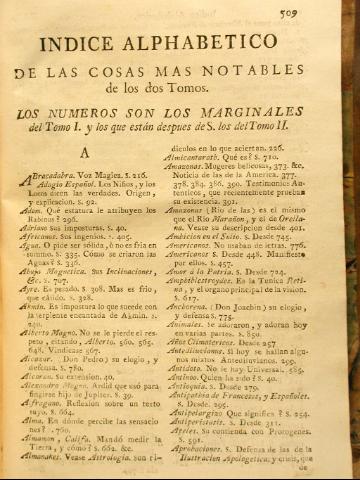 509
INDICE ALPHABETICO
DE LAS COSAS MAS NOTABLES
de los dos Tomos.
LOS NUMEROS SON LOS MARGINALES
del Tomo I. y los que están despues de S. los del Tomo II.
A
ABracadabra. Voz Magica. S. 216.
Adagio Español. Los Niños, y los
Locos dicen las verdades. Origen,
y explicacion. S. 92.
Adam. Qué estatura le atribuyen los
Rabinos? 296.
Adriano sus imposturas. S. 40.
Africanos. Sus ingenios. S. 405.
Agua. O pice ser sólida, ò no es fria en
sumino. S. 335. Cómo se criaron las
Aguas? S. 336.
Abujo Magnetica. Sus Inclinaciones,
&c. 2. 707.
Ayre. Es pesado. S. 308. Mas es frio,
que cálido. S. 328.
Akmin. Es impostura lo que sucede con
la serpiente encantada de Akmin. S.
240.
Alberto Magno. No se le pierde el res-
peto, citando, Alberto. 560. 565.
648. Vindicase 567.
Alcazar. (Don Pedro) su elogio, y
defensa. S. 780.
Alcoran. Su extension. 40.
Alexandro Magno. Ardid que usó para
fingirse hijo de Jupiter. S. 39.
Alfragano. Reflexion sobre un texto
suyo. S. 664.
Alma. En dónde percibe las sensacio-
nes? . 760.
Almamon, Califa. Mandó medir la
Tierra, y cómo? S. 662. &c.
Almanakes. Vease Astrologia. son ri-
diculos en lo que aciertan. 226.
Almicantarath. Qué es? S. 710.
Amazonas. Mugeres belicosas, 373. &c.
Noticia de las de la America. 377.
378. 384. 386. 390. Testimonios Au-
tenticos, que recientemente prueban
su existencia. 391.
Amazonas (Rio de las) es el mismo
que el Rio Marañon, y el de Orella-
na. Vease su descripcion desde 401.
Ambicion en el Suito. S. Desde 745.
Americanos. No usaban de letras. 776.
Americanos S. Desde 448. Manifiesto
por ellos. S. 457.
Amor á la Patria. S. Desde 724.
Amphiblestroydes. Es la Tunica Retina,
y el organo principal de la vision.
S. 617.
Anchorena. (Don Joachin) su elogio,
y defensa S. 775.
Animales. Se adoraron, y adoran hoy
en varias partes. S. 850.
Años Climatericos. Desde 257
Antediluvianos. Si hoy se hallan algu-
nos mixtos Antediluvianos. 299.
Antidoto. No le hay Universal. 585.
Antinoo. Quien ha sido? S. 40.
Antioquia. S. Desde 279.
Antipathia de Franceses, y Españoles.
S. Desde. 295.
Antipelargizo Que significa? S. 254.
Antiperistasis. S. Desde 311.
Apeles. Su contienda con Protogenes.
S. 591.
Aprobaciones. S. Defensa de las de la
Ilustracion Apologetica; y crisis, que
de